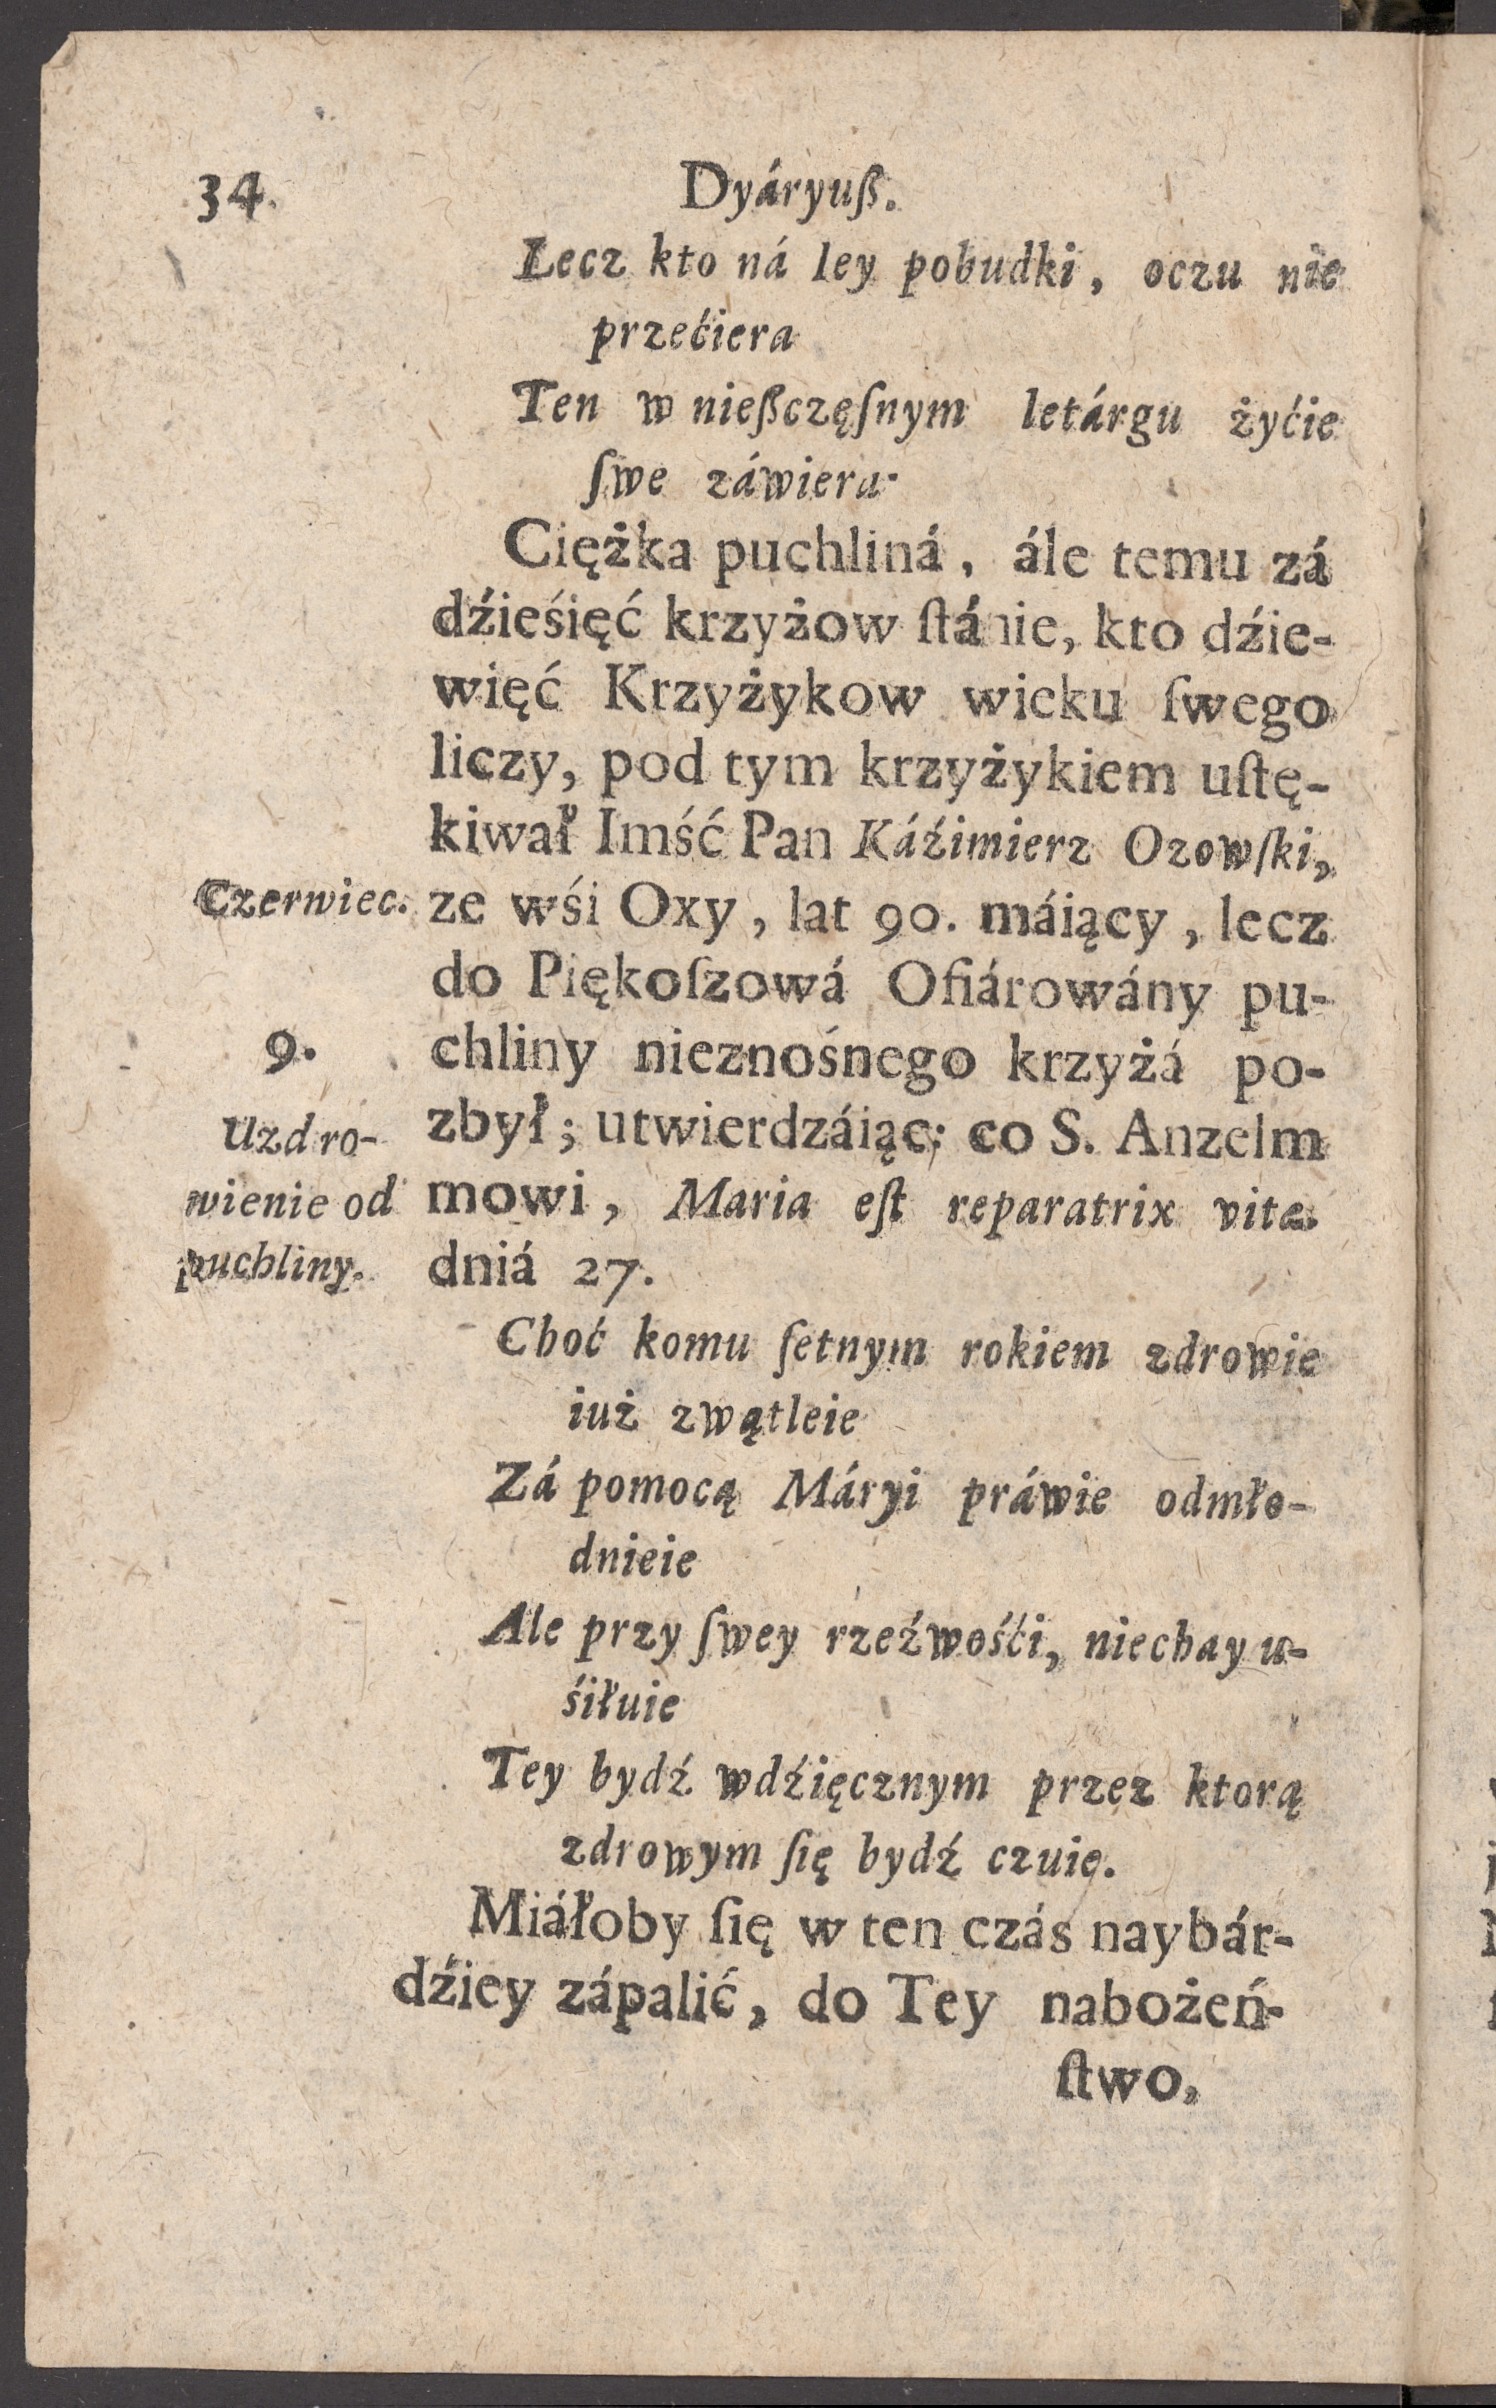 34.
Dyáryuß.
Lecz kto ná Iey pobudki, oczu nie
przećiera
Ten w nießczęſnym letárgu żyćie
ſwe záwiera
Ciężka puchliná, ále temu zá
dźieśięć krzyżow ſtánie, kto dźie-
więć Krzyżykow wieku ſwego
liczy, pod tym krzyżykiem uſtę-
kiwał Imść Pan Káźimierz Ozowſki,
Czerwiec.
ze wśi Oxy, lat 90. máiący, lecz
do Piękoſzowá Ofiárowány pu-
9.
chliny nieznośnego krzyżá po-
Uzdro-
zbył; utwierdzáiąc; co S. Anzelm
wienie od
mowi, Maria eſt reparatrix vitæ.
puchliny.
dniá 27.
Choć komu ſetnym rokiem zdrowie
iuż zwątleie
Zá pomocą Máryi práwie odmło-
dnieie
Ale przy ſwey rzeźwośći, niechay u-
śiłuie
Tey bydź wdźięcznym przez ktorą
zdrowym ſię bydź czuie.
Miáłoby ſię w ten czás naybár-
dźiey zápalić, do Tey nabożeń-
ſtwo,